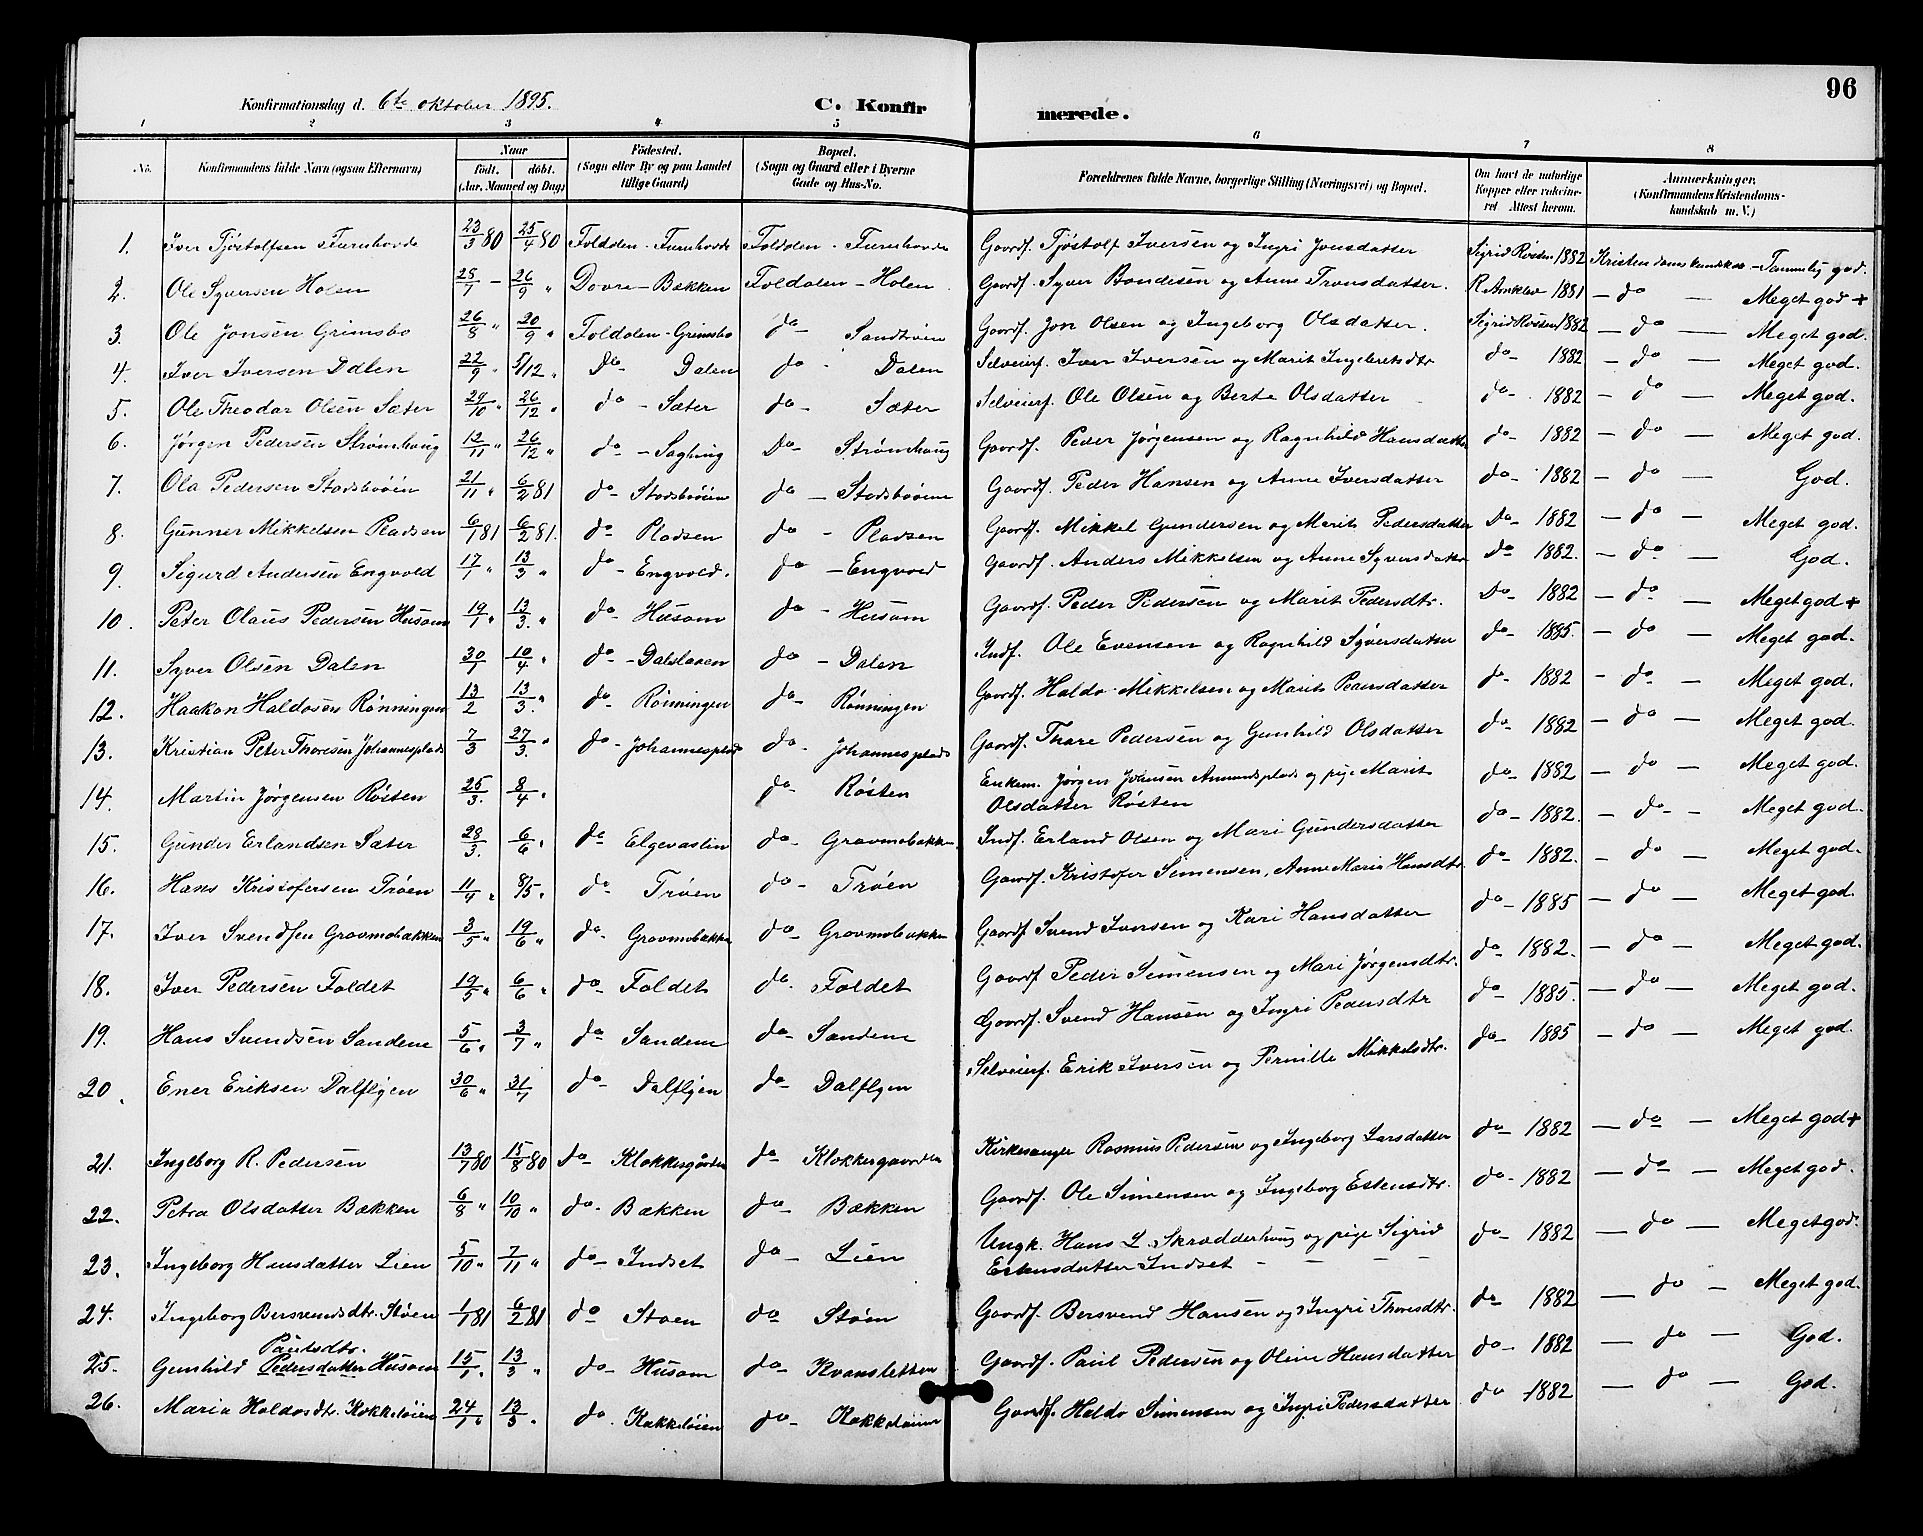 96
Konfirmationsdag d. 6te oktober 1895. C. Konfirmerede.
1 2 3 4 5 6 7 8
No. Konfirmandens fulde Navn (ogsaa Efternavn) Naar født. døbt. (Aar, Maaned og Dag) Fødested. (Sogn eller By og paa Landet tillige Gaard) Bopæl. (Sogn og Gaard eller i Byerne Gade og Hus-No. Forældrenes fulde Navne, borgerlige Stilling (Næringsvei) og Bopæl. Om havt de naturlige Kopper eller vakcineret Attest herom. Anmærkninger. (Konfirmandens Kristendomskundskab m. V.)
1. Iver Tjøstolfsen Furuhovde 23/3 80 25/4 80 Foldalen - Furuhovde Foldalen - Furuhovde Gaardf. Tjøstolf Iversen og Ingri Jonsdatter Sigrid Røsten 1882 Kristendomskundskab - Tammelig god.
2. Ole Syversen Holen 25/7 - 26/9 " Dovre - Bækken Foldalen - Holen Gaardf. Syver Bondesen og Anne Tronsdatter. 1881 - do - Meget god +
3. Ole Jonsen Grimsbo 26/8 " 20/9 " Foldalen - Grimsbo do - Gaardf. Jon Olsen og Ingeborg Olsdatter. Sigrid Røsten 1882 - do - Meget god.
4. Iver Iversen Dalen 22/9 " 5/12 " Do - Dalen do - Dalen Selveierf. Iver Iversen og Marit Ingebretsdtr do - 1882 - do - Meget god.
5. Ole Theodor Olsen Sæter 29/10 " 26/12 " do - Sæter do - Sæter Selveierf. Ole Olsen og Berte Olsdatter do - 1882 - do - Meget god.
6. Jørgen Pedersen Strømhaug 12/11 " 26/12 " do - Do - Strømhaug Gaardf. Peder Jørgensen og Ragnhild Hansdatter do - 1882 - do - Meget god.
7. Ola Pedersen Stadsbøien 21/11 " 6/2 81 do - Stadsbøien do - Stadsbøiene Gaardf. Peder Hansen og Anne Iversdatter do - 1882 - do God.
8. Gunner Mikkelsen Pladsen 6/1 81 6/2 81. do - Pladsen do - Pladsen Gaardf. Mikkel Gundersen og Marit Pedersdatter Do - 1882 - do - Meget god.
9. Sigurd Andersen Engvold 17/1 " 13/3 " do - Engvold. do - Engvold Gaardf. Anders Mikkelsen og Anne Syversdatter Do - 1882. - do - God.
10. Peter Olaus Pedersen Husom 19/1 " 13/3 " do - Husom do - Husom Gaardf. Peder Pedersen og Marit Pedersdtr. Do - 1882 - do - Meget god +
11. Syver Olsen Dalen 30/1 10/4 " do - do - Dalen Indf. Ole Evensen og Ragnhild Syversdatter do - 1885. - do - Meget god.
12. Haakon Haldosen Rønningen 13/2 13/3 " do - Rønningen do - Rønningen Gaardf. Haldo Mikkelsen og Marit do - 1882 - do - Meget god.
13. Kristian Peter Thoresen Johannesplads 7/3 27/3 " do - Johannesplads do - Johannesplads Gaardf. Thore Pedersen og Gunhild Olsdatter do - 1882 - do - Meget god.
14. Martin Jørgensen Røsten 25/3. 8/4 " do - Røsten Enkem. Jørgen Johansen Amundsplads og pige Marit
Olsdatter Røsten do - 1882 - do - Meget god.
15. Gunder Erlandsen Sæter 28/3. 6/6 " do Elgevaslin do - Gravmobakken Indf. Erland Olsen og Mari Gundersdatter do - 1882. - do - Meget god.
16. Hans Kristofersen Trøen 11/4 " 8/5 " do - Trøen do - Trøen Gaardf. Kristofer Simensen, Anne Maria Hansdtr do - 1882. - do Meget god.
17. Iver Svendsen Gravmobækken 3/5 " 19/6 " do - Gravmobækken do - Gravmobækken Gaardf. Svend Iversen og Kari Hansdatter do - 1885 - do - Meget god.
18. Iver Pedersen Foldet 19/5 " 6/6 " do - Foldet do - Foldet Gaardf. Peder Simensen og Mari Jørgensdtr. do - 1882. - do - Meget god.
19. Hans Svendsen Sandene 5/6 " 3/7 " do - Sandene do - Sandene Gaardf. Svend Hansen og Ingri Pedersdtr do - 1885. - do - Meget god.
20. Ener Eriksen Dalflyen 30/6 " 31/7 do - Dalflyen do - Dalflyen Selveierf. Erik Iversen og Pernille Mikkelsdtr. do - 1885 - do - Meget god.
21. Ingeborg R. Pedersen 13/7 80 15/8 80 Do - Klokkergården do - Klokkergaarden Kirkesanger Rasmus Pedersen og Ingeborg Larsdatter do - 1882 - do - Meget god +
22. Petra Olsdatter Bækken 6/8 " 10/10 " do - Bækken do - Bækken Gaardf. Ole Simensen og Ingeborg Estensdtr. do - 1882 - do - Meget god.
23. Ingeborg Hansdatter Lien 5/10 " 7/11 " do - Indset do - Lien Ungk. Hans L. Skrædderhaug og pige Sigrid
Estensdatter Indset - - - - do - 1882 - do - Meget god.
24. Ingeborg Bersvendsdtr. Støen 1/1 81 6/2 81 do - Støen do - Støen Gaardf. Bersvend Hansen og Ingri Thoresdtr. do - 1882 - do - Meget god.
Paulsdtr.
25. Gunhild Pedersdatter Husom 15/1 " 13/3 " do - Husom do - Kvansletten Gaardf. Paul Pedersen og Oline Hansdatter do - 1882 - do - God.
26. Maria Haldosdtr. Kokkeløien 24/1 " 13/3 " do - Kokkeløien do - Kokkeløien Gaardf. Haldo Simensen og Ingri Pedersdatter do - 1882 - do - God.